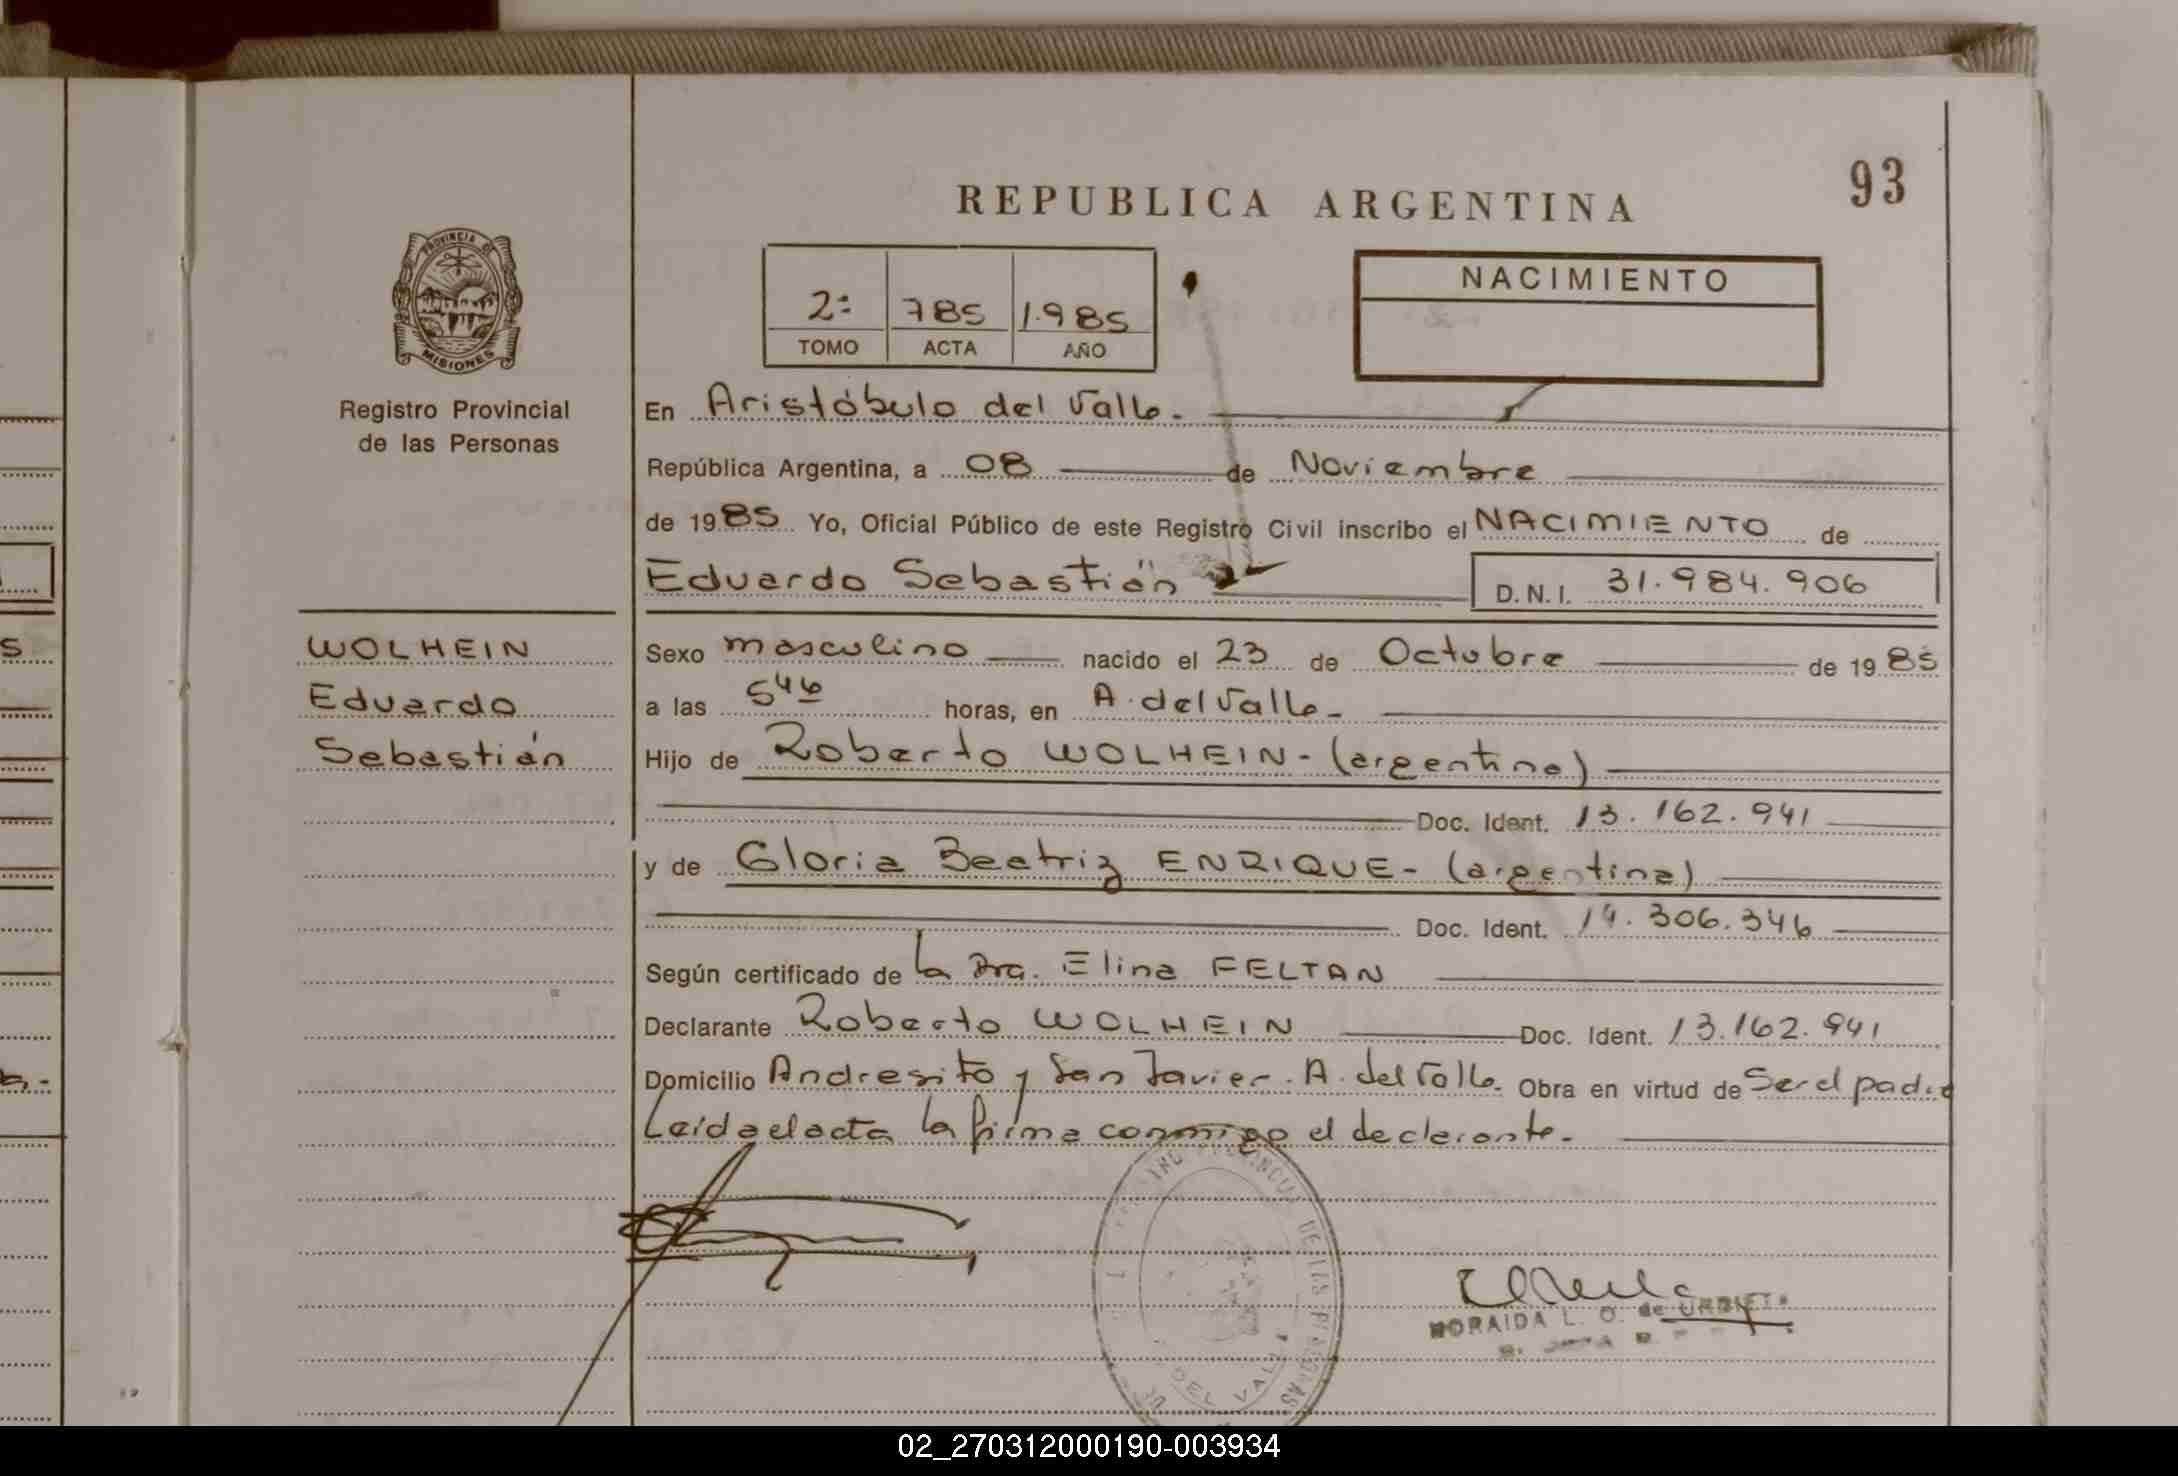 93
REPUBLICA ARGENTINA
PROVINCIA DE
MISIONES
Registro Provincial
de las Personas
2= 785 1.985
TOMO ACTA AÑO
NACIMIENTO
En Aristóbulo del Valle.
República Argentina, a 08 de Noviembre
de 1985 Yo, Oficial Público de este Registro Civil inscribo el NACIMIENTO de
Eduardo Sebastián D.N.I. 31.984.906
WOLHEIN
Eduardo
Sebastián
Sexo masculino nacido el 23 de Octubre de 1985
a las 5 46 horas, en A. del Valle.
Hijo de Roberto WOLHEIN - (argentino)
Doc. Ident. 13.162.941
y de Gloria Beatriz ENRIQUE - (argentina)
Doc. Ident. 14.306.346
Según certificado de la Dra. Elina FELTAN
Declarante Roberto WOLHEIN Doc. Ident. 13.162.941
Domicilio Andresito y San Javier. A. del Valle. Obra en virtud de Ser el padre
Leída el acta la firma conmigo el declarante.
DEL VALLE
NORAIDA L. O. de URBIETA
02_270312000190-003934